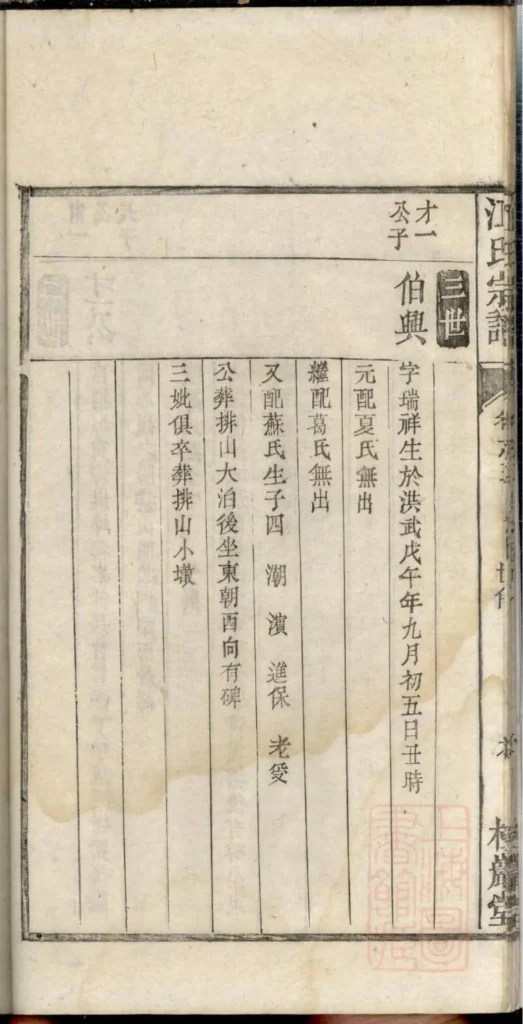 江氏宗譜
三世
才一
公子
伯興
字瑞祥生於洪武戊午年九月初五日丑時
元配夏氏無出
繼配葛氏無出
又配蘇氏生子四 潮 濵 進保 老受
公葬排山大泊後坐東朝酉向有碑
三妣俱卒葬排山小墩